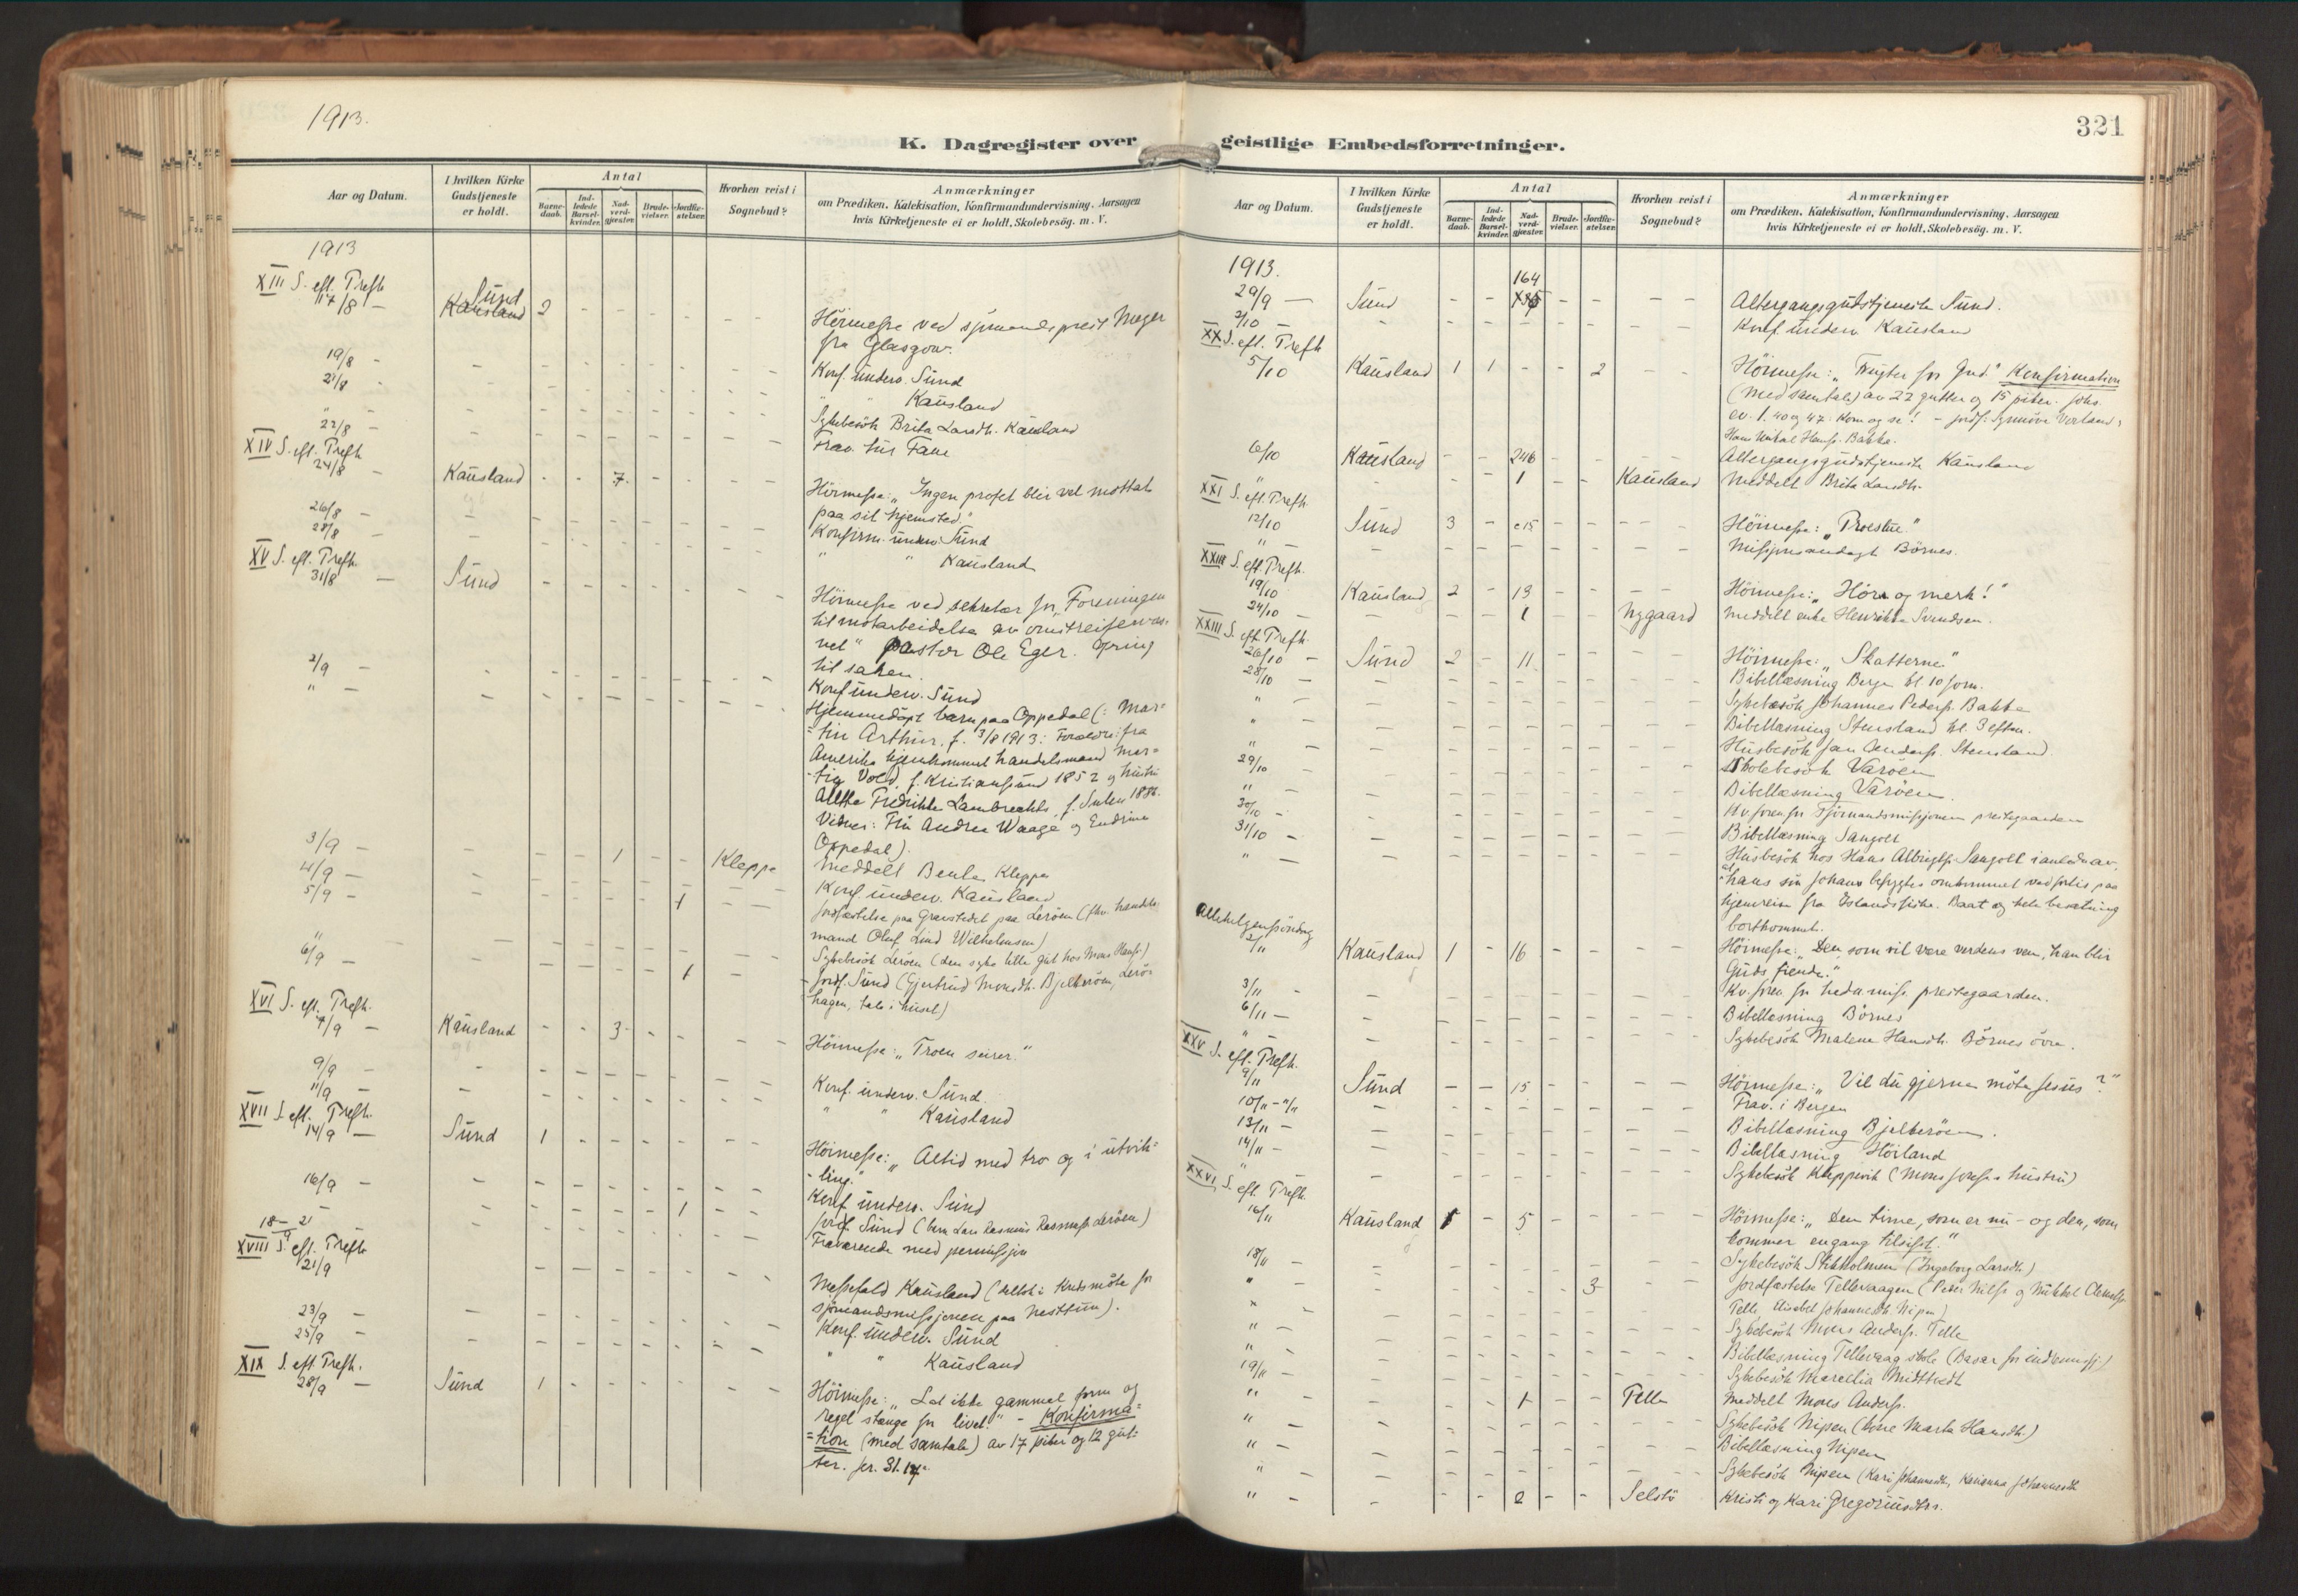 1913.
K. Dagregister over
Aar og Datum.
I hvilken Kirke Gudstjeneste er holdt.
Antal
Barne-daab.
Ind-ledede Barsel-kvinder.
Nad-verd-gjester.
Brude-vielser.
Jordfæ-stelser.
Hvorhen reist i Sognebud?
Anmærkninger
om Prædiken. Katekisation, Konfirmandundervisning. Aarsagen
hvis Kirketjeneste ei er holdt, Skolebesög. m. V.
1913
XIII S. eft. Trefh
17/8 – Sund Kausland 2 Höimesse ved sjömandsprest Meyer
fra Glasgow.
19/8 – Konf. underv. Sund
21/8 " " Kausland
22/8 – Sykebesök Brita Larsdh. Kausland
XIV S. eft. Trefh Frav. hus Fane
24/8 – Kausland 7 Höimesse: „Ingen profet blir vel mottat
paa sit hjemsted."
26/8 – Konfirm. underv. Sund
28/8 " " Kausland
XV S. eft. Trefh.
31/8 – Sund Höimesse ved sekretær for „Foreningen
til motarbeidelse av omstreifervæs-
net" pastor Ole Eger. Ofring
til saken.
2/9 – Konf underv. Sund
" – Hjemmedöpt barn paa Oppedal (: Mar-
tin Arthur, f. 3/8 1913: Forældre: fra
Amerika hjemkommet handelsmand Mar-
tin Vold, f. Kristiansund 1852 og hustru
Fredrikke Lambrechts f.
Vidner: Andrea Waage og Endrine
Oppedal).
3/9 – 1 Kleppe Meddelt Kleppe
4/9 – Konf. underv. Kausland
5/9 – 1 Jordfæstelse paa gravstedet paa Leröen (fhv. handels-
mand Oluf Lind Wilhelmsen)
" Sykebesök Leröen (den syke lille gut hos Mons Hanss.)
6/9 – 1 Jordf. Sund (Gjertrud Monsdh. Bjelkeröen, Lerö-
hagen, tale i huset)
XVI S. eft. Trefh.
7/9 – Kausland 3 Höimesse: „Troen seirer."
9/9 – Konf. underv. Sund.
11/9 – " " Kausland
XVII S. eft. Trefh.
14/9 – Sund 1 Höimesse: „Altid med tro og i utvik-
ling."
16/9 – Konf underv. Sund
– 1 Jordf. Sund (barn Lars Rasmus Rasmuss. Leröen)
18–21/9 Fraværende med permissjon
XVIII S. eft. Trefh
21/9 Messefald Kausland (deltok i Kredsmöte for
sjömandsmissjonen paa Nesttun).
23/9 – Konf. underv. Sund
25/9 – " " Kausland
XIX S. eft. Trefh.
28/9 – Sund 1 Höimesse: „Lat ikke gammel form og
regel stænge for livet." – Konfirma-
tion (med samtale) av 17 piker og 12 gut-
ter. Jer. 31.
321
geistlige Embedsforretninger.
Aar og Datum.
I hvilken Kirke Gudstjeneste er holdt.
Antal
Barne-daab.
Ind-ledede Barsel-kvinder.
Nad-verd-gjæster.
Brude-vielser.
Jordfæ-stelser.
Hvorhen reist i Sognebud?
Anmærkninger
om Prædiken. Katekisation, Konfirmandundervisning. Aarsagen
hvis Kirketjeneste ei er holdt, Skolebesög. m. V.
1913.
29/9 – Sund 164 Altergangsgudstjeneste Sund.
2/10 – Konf. underv. Kausland
XX S. eft. Trefh
5/10 Kausland 1 1 2 Höimesse: „Frugter for Gud." Konfirmation
(med samtale) av 22 gutter og 15 piker. Johs.
ev. 1. 40 og 47: Kom og se! – Jordf: Synnöve
Hans Mikal Hanss. Bakke.
6/10 Kausland 246 Altergangsgudstjeneste Kausland
" 1 Kausland Meddelt Brita Larsdh.
XXI S. eft. Trefh.
12/10 Sund 3 15 Höimesse:
" – Missjonsandagt Börnes.
XXII S. eft. Trefh.
19/10 Kausland 2 19 Höimesse: „Hör og merk!"
24/10 – 1 Nygaard Meddelt enke Henrikke Svendsen.
XXIII S. eft. Trefh.
26/10 – Sund 2 11 Höimesse: „Skatterne."
28/10 – Bibellæsning Berge kl. 10 form.
" – Sykebesök Johannes Peders. Bakke
" – Bibellæsning Stensland kl. 3 efterm.
" Husbesök Jan Anderss. Stensland.
29/10 – Skolebesök Varöen
" Bibellæsning Varöen
30/10 – Kv. foren for Sjömandsmissjonen prestegaarden
31/10 – Bibellæsning Sangolt
" – Husbesök hos Hans Albrigts. Sangolt i anledn. av,
at hans sön Johan befrygtes omkommet ved forlis paa
hjemreise fra Islandsfiske. Baat og hele besætning
bortkommet.
Allehelgensöndag
2/11 Kausland 1 16 Höimesse: „Den, som vil være verdens ven, han blir
Guds fiende."
3/11 – Kv. foren for hedn. miss. prestegaarden.
6/11 – Bibellæsning Börnes
" – Sykebesök Malene Hansdh. Börnes övre.
XXV S. eft. Trefh.
9/11 Sund 15 Höimesse: „Vil du gjerne möte Jesus?"
10/11 – 11/11 Frav. i Bergen
13/11 – Bibellæsning Bjelkeröen.
14/11 – Bibellæsning Höiland
" Sykebesök Kleppevik (Mons Josefs. hustru)
XXVI S. eft. Trefh.
16/11 Kausland 1 5 Höimesse: „Den time, som er nu – og den, som
kommer engang tilsist."
18/11 – Sykebesök Stikholmen (Ingeborg Larsdh.)
" 3 Jordfæstelse Tellevaagen (Peder Nilss. og Mikkel Clemetss.
Telle, Elisabet Johannesdh. Nipen)
" – Sykebesök Mons Anderss. Telle
" – Bibellæsning Tellevaag skole (Basar for indremissj.)
" Sykebesök Marcellia Midttvedt
19/11 – 1 Telle Meddelt Mons Anderss.
" – Sykebesök Nipen (kone Marta Hansdh.)
" – Bibellæsning Nipen
" – Sykebesök Nipen (Kari Johannesdh., Johannesdh
" – 2 Selstö Kristi og Kari Gregoriusdtrs.